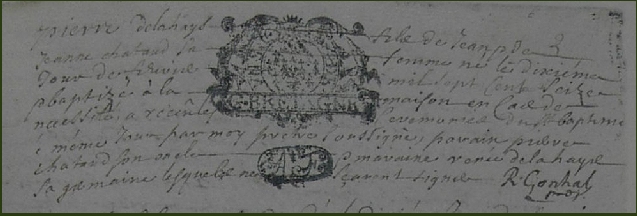 pierre delahaye fils de Jean p de
jeanne chataud sa femme ne le dixiéme
Jour de mil sept cent seize
p baptize a la maison en cas de
necessité a receu les ceremonies du St Baptme
meme Jour par moy prêtre soussigné, parain pierre
chataud son oncle maraine renee delahaye
sa germaine lesquels ne sçavent signer R Gonhal
G. BRETAGNE